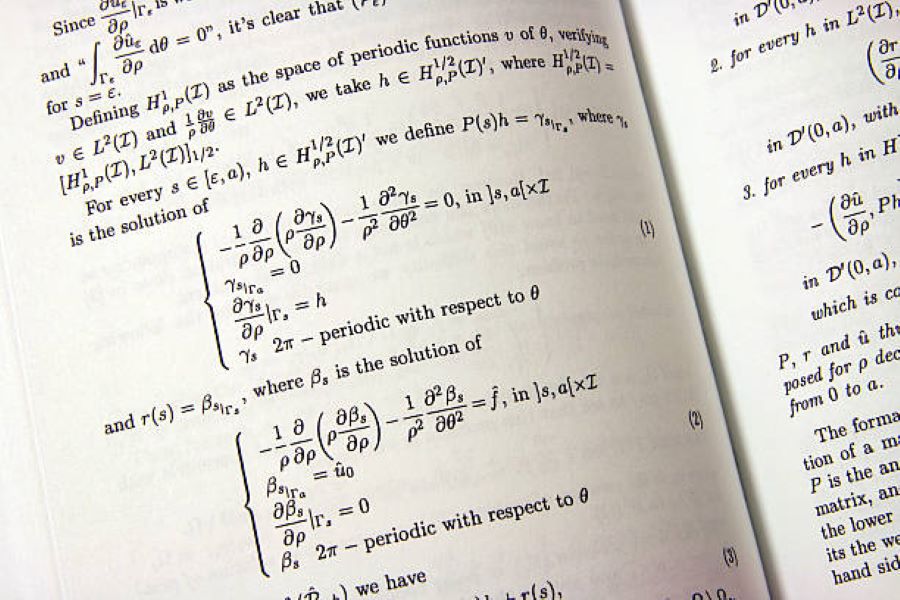 Since ∂ûε/∂ρ|Γε is
and “∫Γε ∂ûε/∂ρ dθ = 0”, it's clear that
for s = ε.
Defining H¹ρ,P(I) as the space of periodic functions v of θ, verifying
v ∈ L²(I) and 1/ρ ∂v/∂θ ∈ L²(I), we take h ∈ H^{1/2}ρ,P(I)′, where H^{1/2}ρ,P(I) =
[H¹ρ,P(I), L²(I)]1/2.
For every s ∈ [ε, a), h ∈ H^{1/2}ρ,P(I)′ we define P(s)h = γs|Γs, where γs
is the solution of
−1/ρ ∂/∂ρ (ρ ∂γs/∂ρ) − 1/ρ² ∂²γs/∂θ² = 0, in ]s, a[×I
γs|Γa = 0
(1)
∂γs/∂ρ|Γs = h
γs 2π − periodic with respect to θ
and r(s) = βs|Γs, where βs is the solution of
−1/ρ ∂/∂ρ (ρ ∂βs/∂ρ) − 1/ρ² ∂²βs/∂θ² = f̂, in ]s, a[×I
βs|Γa = û0
(2)
∂βs/∂ρ|Γs = 0
βs 2π − periodic with respect to θ
we have
(3)
r(s),
in D′(0,
2. for every h in L²(I),
(∂r
in D′(0, a), with
3. for every h in H
−(∂û/∂ρ, Ph
in D′(0, a),
which is
P, r and û
posed for ρ
from 0 to a.
The
tion of a
P is the
matrix,
the lower
its the
hand